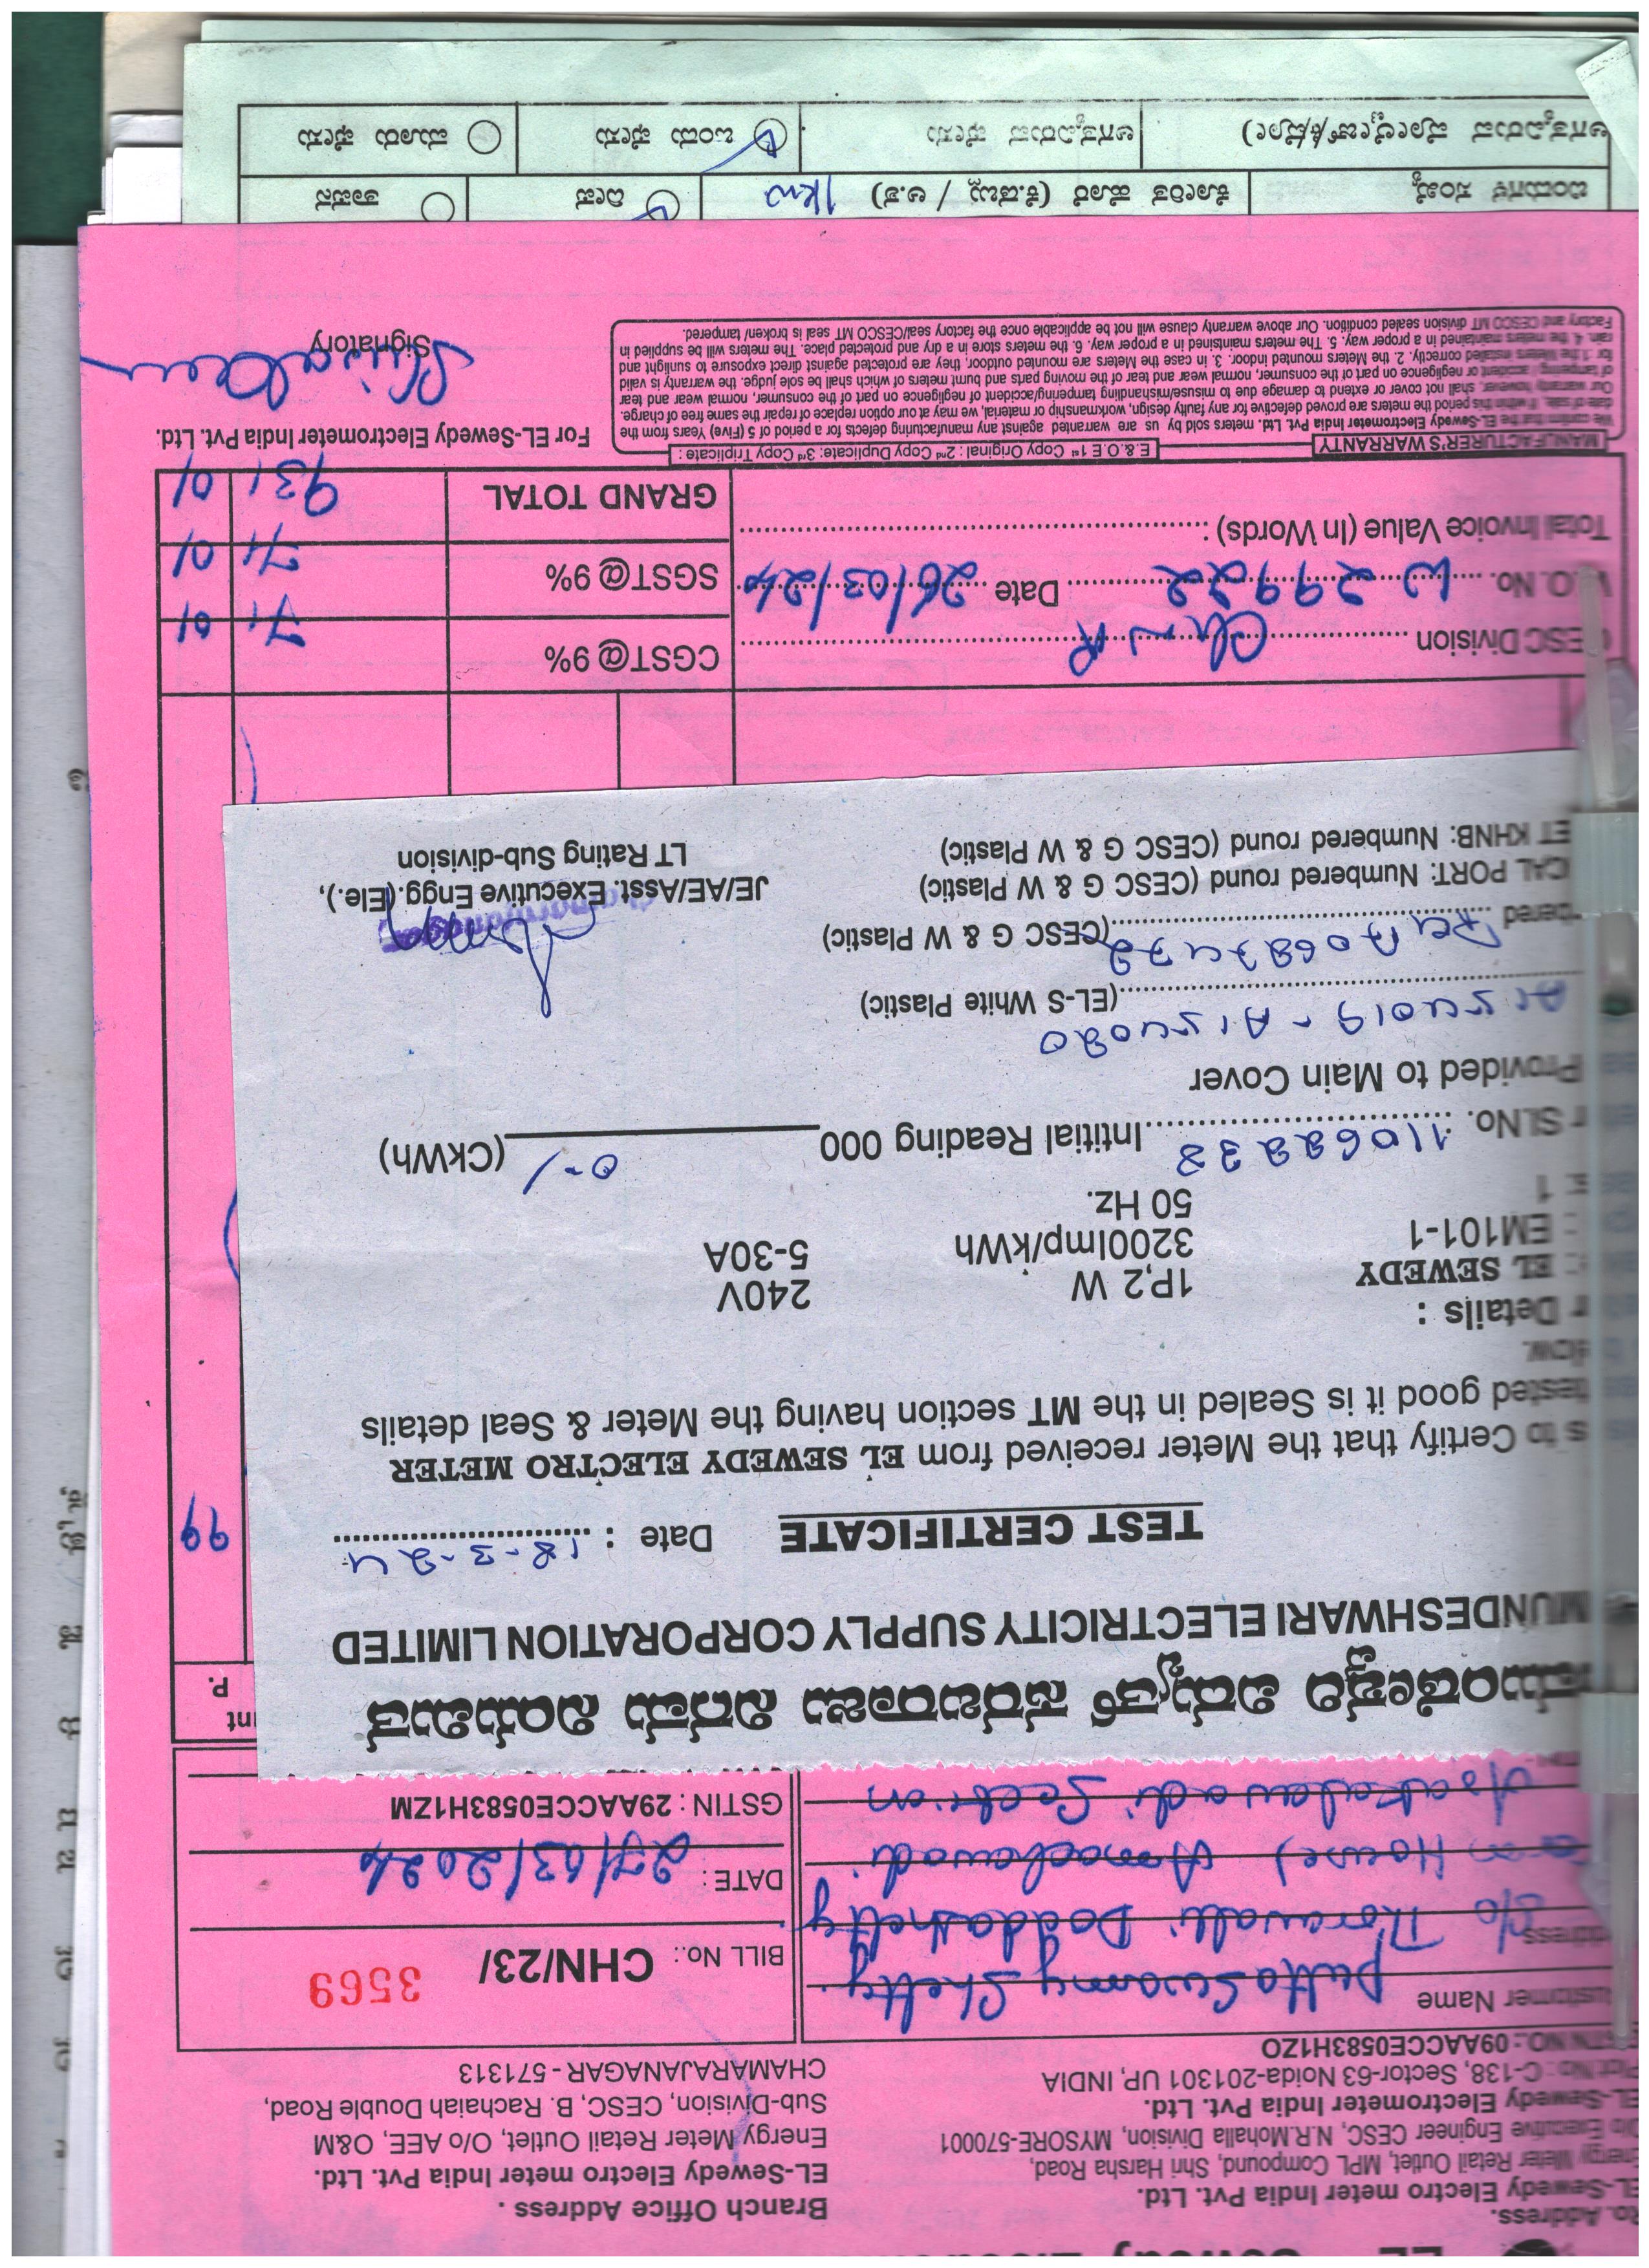 Ro. Address.
EL-Sewedy Electro meter India Pvt. Ltd.
Energy Meter Retail Outlet, MPL Compound, Shri Harsha Road,
O/o Executive Engineer CESC, N.R.Mohalla Division, MYSORE-570001
EL-Sewedy Electrometer India Pvt. Ltd.
Plot No : C-138, Sector-63 Noida-201301 UP, INDIA
NO.: 09AACCE0583H1ZO
Branch Office Address .
EL-Sewedy Electro meter India Pvt. Ltd.
Energy Meter Retail Outlet, O/o AEE, O&M
Sub-Division, CESC, B. Rachaiah Double Road,
CHAMARAJANAGAR - 571313
ustomer Name puttaSwamy Shetty
ddress S/o Thoravalli Doddashetty
House) Amachawadi
Section
BILL No.: CHN/23/ 3569
DATE : 27/03/2024
GSTIN : 29AACCE0583H1ZM
unt
P.
99
ಮುಂಡೇಶ್ವರಿ ವಿದ್ಯುತ್ ಸರಬರಾಜು ನಿಗಮ ನಿಯಮಿತ
MUNDESHWARI ELECTRICITY SUPPLY CORPORATION LIMITED
TEST CERTIFICATE Date : 18-3-24
s to Certify that the Meter received from EL SEWEDY ELECTRO METER
tested good it is Sealed in the MT section having the Meter & Seal details
elow.
r Details :
: EL SEWEDY 1P,2 W 240V
: EM101-1 3200Imp/kWh 5-30A
: 1 50 Hz.
r Sl.No. 11062232 Intitial Reading 000 0-1 (CkWh)
Provided to Main Cover
A154019 - A154020 (EL-S White Plastic)
bered (CESC G & W Plastic)
ICAL PORT: Numbered round (CESC G & W Plastic)
ET KHNB: Numbered round (CESC G & W Plastic)
JE/AE/Asst. Executive Engg.(Ele.),
LT Rating Sub-division
CESC Division
W.O. No. W 29922 Date 26/03/24
Total Invoice Value (In Words) :
CGST@ 9% 71 01
SGST@ 9% 71 01
GRAND TOTAL 931 01
E.&.O.E 1st Copy Original : 2nd Copy Duplicate: 3rd Copy Triplicate :
MANUFACTURER'S WARRANTY
We confirm that the EL-Sewedy Electrometer India Pvt. Ltd. meters sold by us are warranted against any manufacturing defects for a period of 5 (Five) Years from the
date of sale, if within this period the meters are proved defective for any faulty design, workmanship or material, we may at our option replace of repair the same free of charge.
Our warranty however, shall not cover or extend to damage due to misuse/mishandling tampering/accident of negligence on part of the consumer, normal wear and tear
of tampering / accident or negligence on part of the consumer, normal wear and tear of the moving parts and burnt meters of which shall be sole judge. the warranty is valid
for :1.the Meters installed correctly. 2. the Meters mounted indoor. 3. In case the Meters are mounted outdoor, they are protected against direct exposure to sunlight and
rain. 4. the meters maintained in a proper way. 5. The meters maintsined in a proper way. 6. the meters store in a dry and protected place. The meters will be supplied in
Factory and CESCO MT division sealed condition. Our above warranty clause will not be applicable once the factory seal/CESCO MT seal is broken/ tampered.
For EL-Sewedy Electrometer India Pvt. Ltd.
Signatory
ಕೋರಿತ ಹೊರೆ (ಕಿ.ಡಬ್ಲ್ಯು / ಅ.ಶ) 1kw
ದೀಪ
ತಾಪನ
ಅಗತ್ಯವಿರುವ ಫೇಸು
ಒಂದು ಫೇಸು
ಮೂರು ಫೇಸು